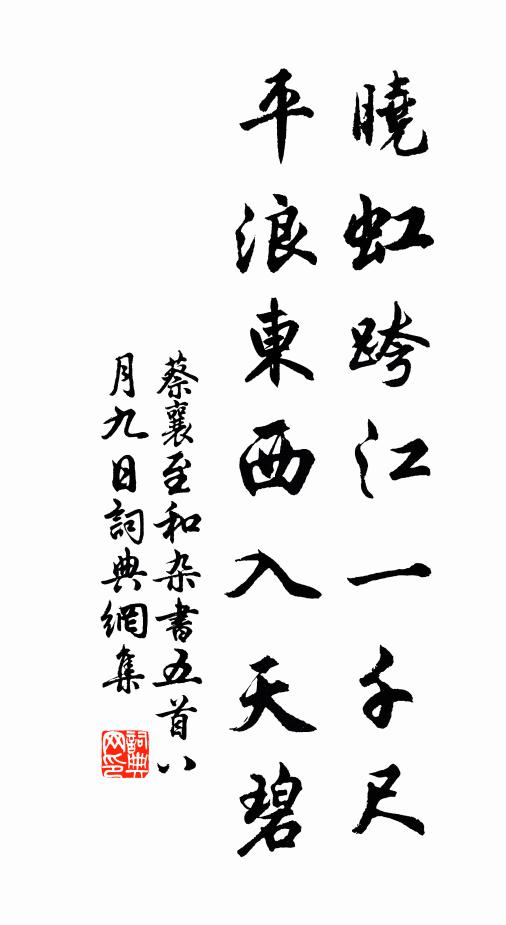 曉虹跨江一千尺
平浪東西入天碧
蔡襄至和杂書五首八
月九日詞典網集
詞典
网印